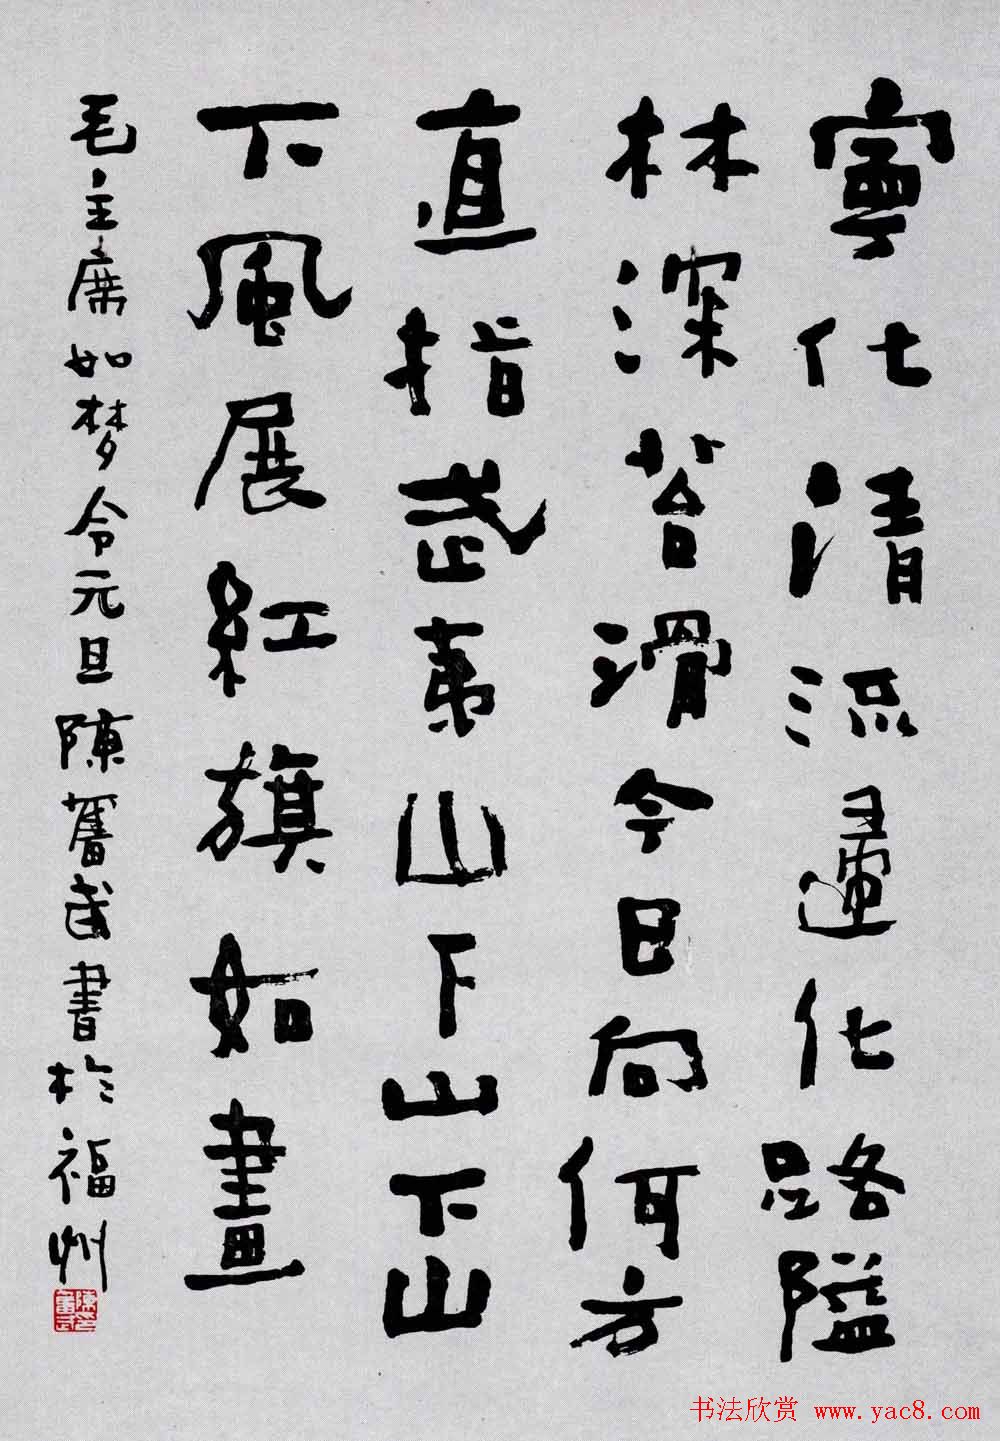 寧化清流歸化路隘
林深苔滑今日向何方
直指武夷山下山下山
下風展紅旗如畫
毛主席如梦令元旦陳奮武書於福州
书法欣赏 www.yac8.com